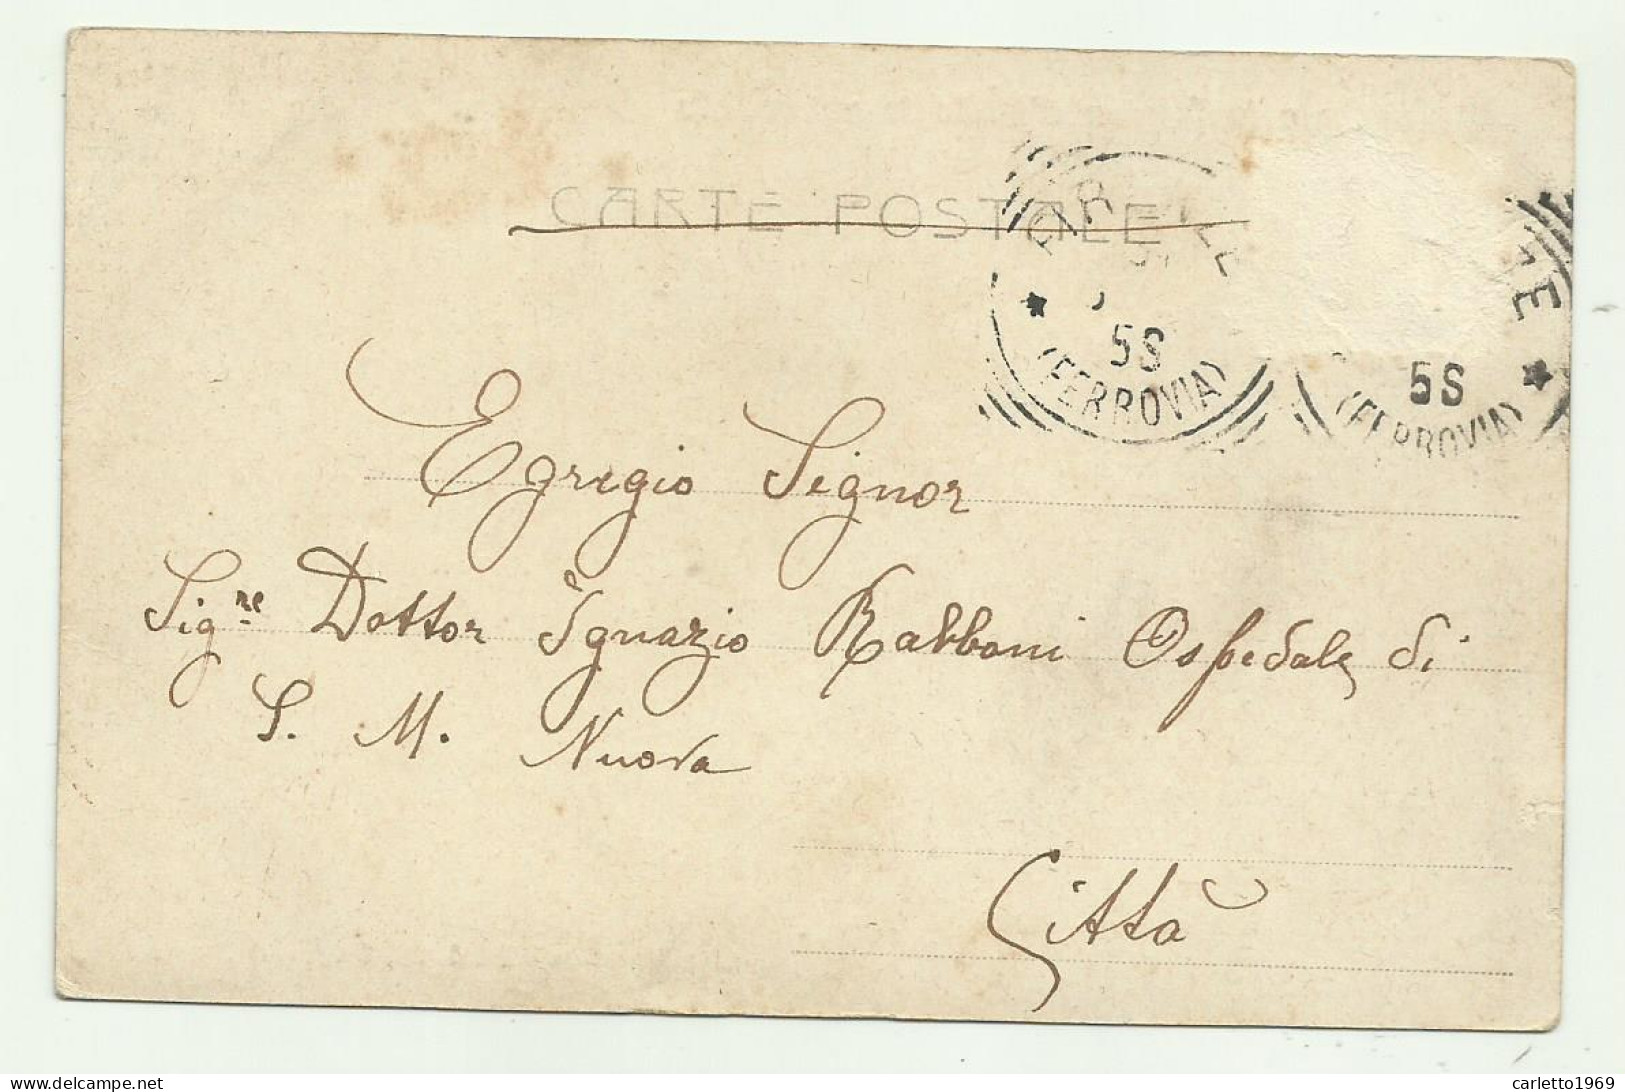 CARTE POSTALE
5S
(FERROVIA)
5S
(FERROVIA)
Egregio Signor
Sig.re Dottor Ignazio Rabboni Ospedale di
S. M. Nuova
Città
delcampe.net
carletto1969